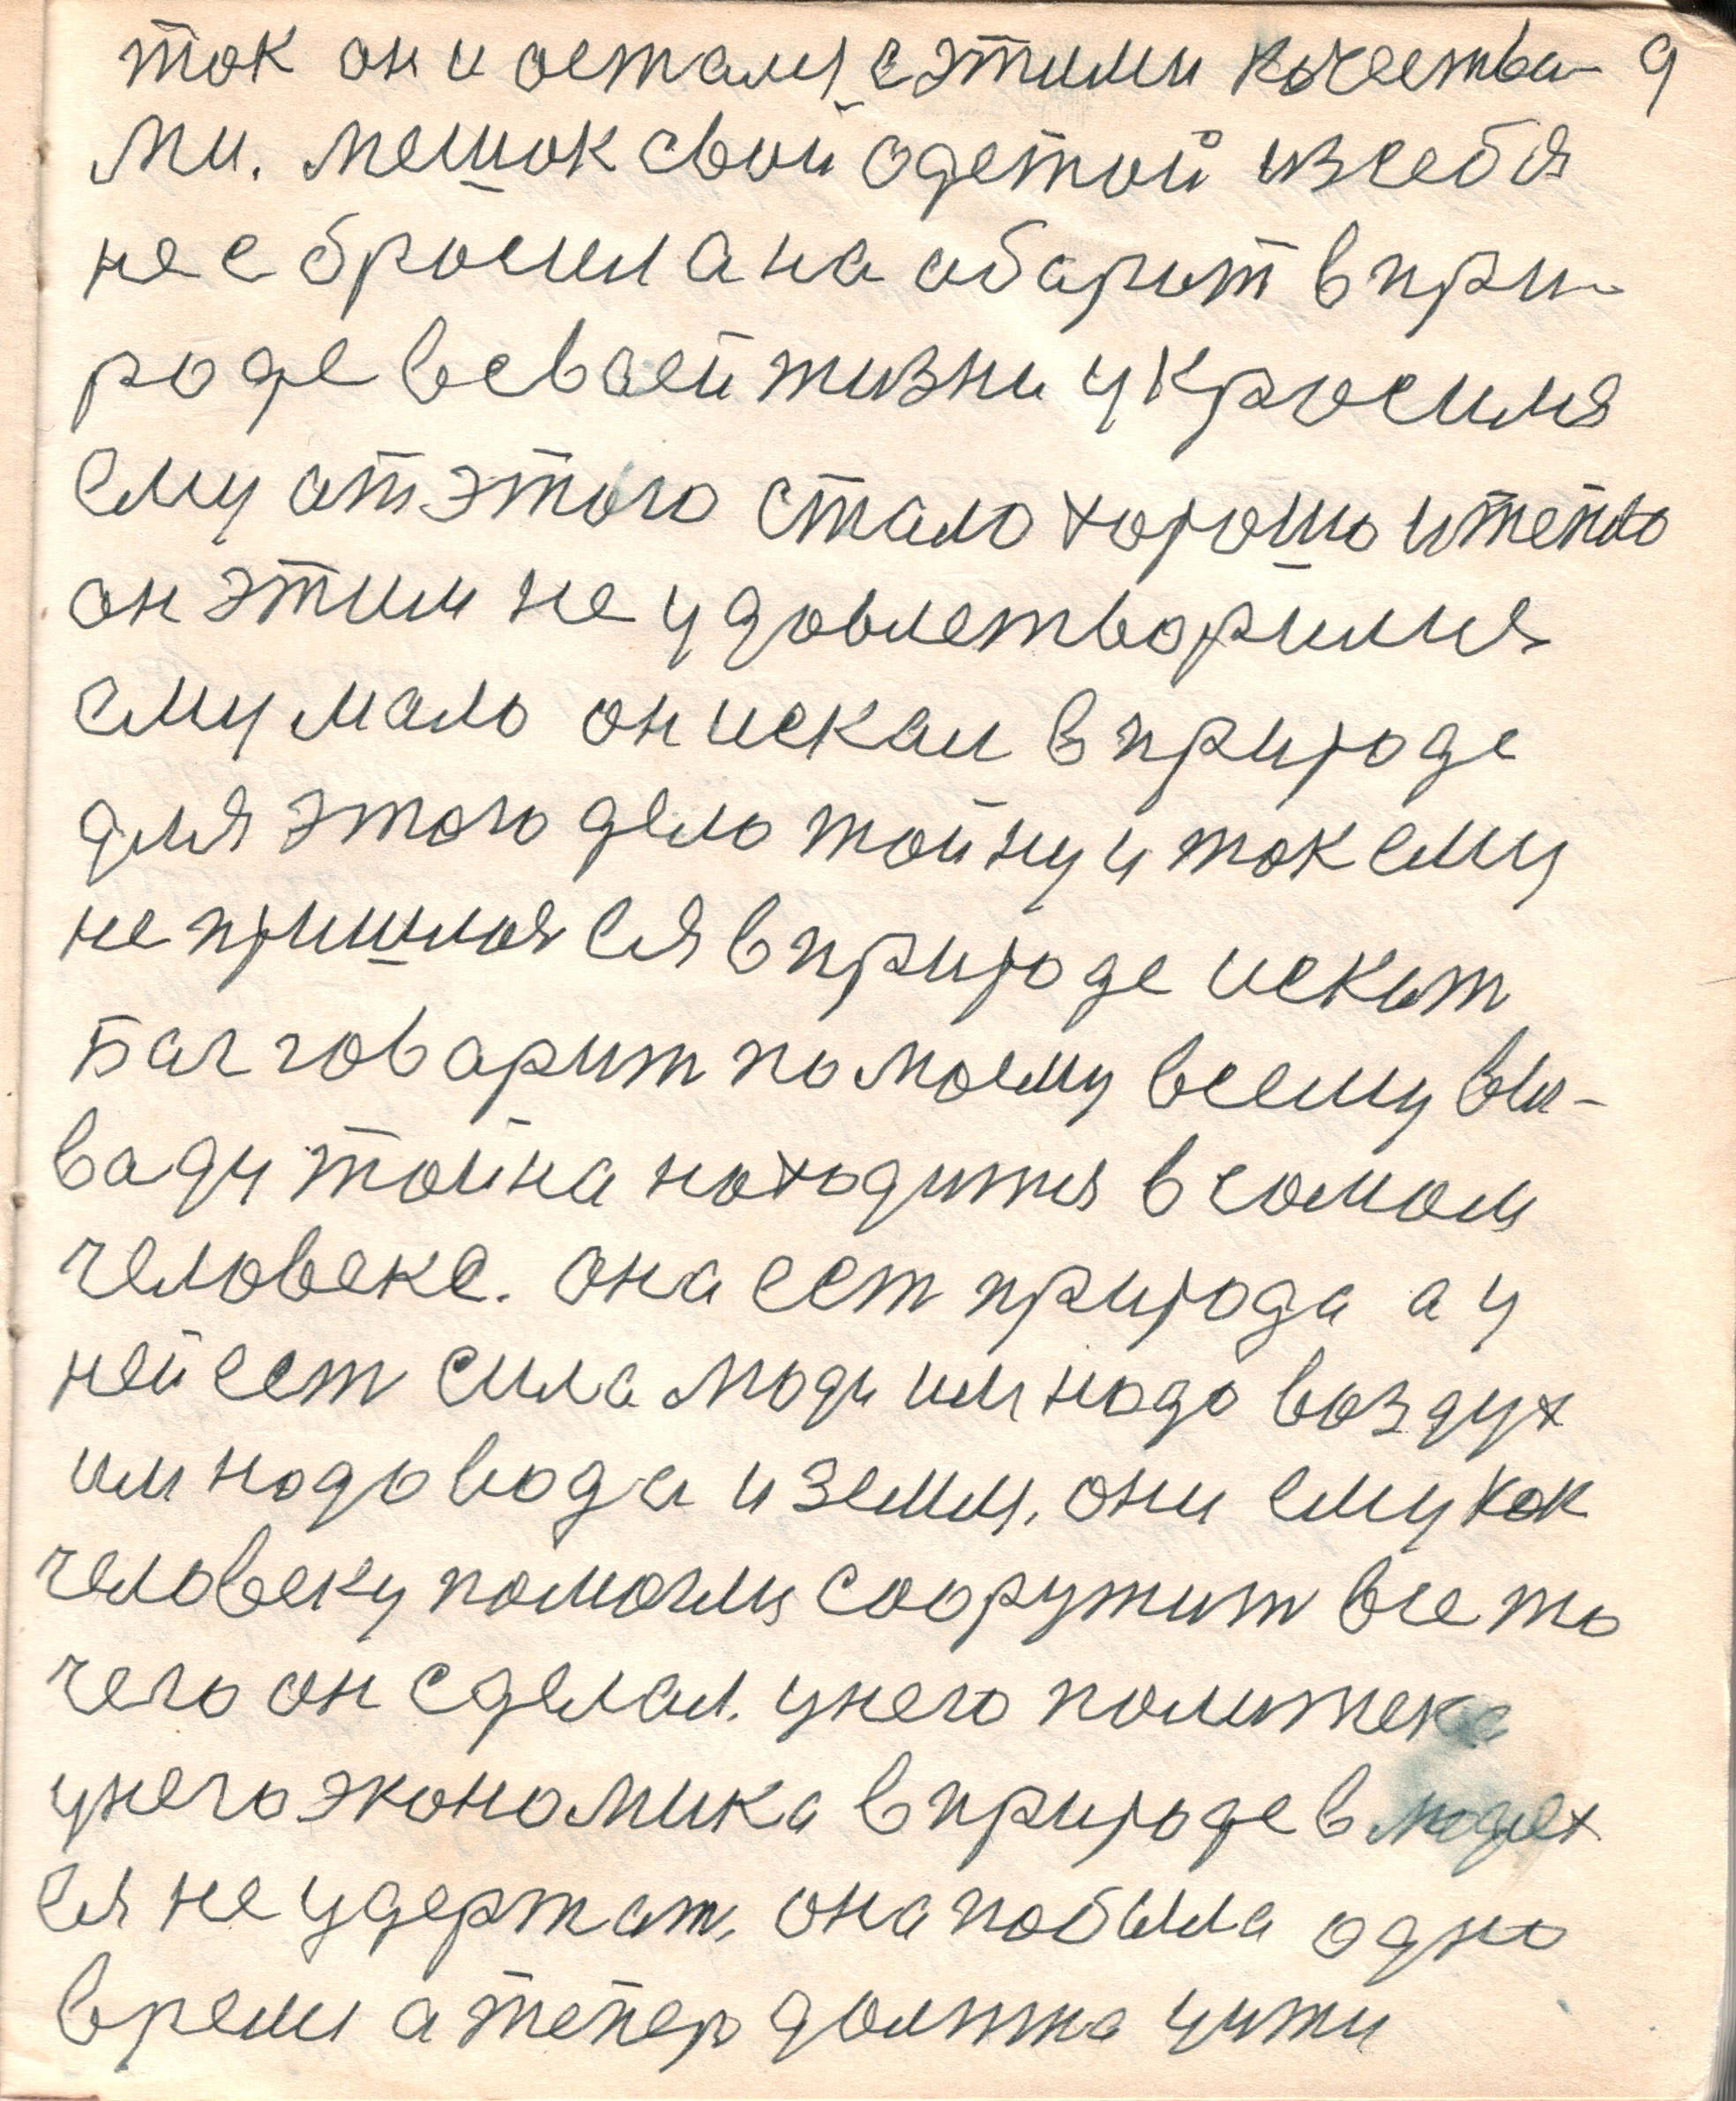 так он и остался с этими качества- 9
ми. мешок свой одетой из себя
не сбросил а на абарит в при-
роде в свсей жизни украсился
ему от этого стало хорошо и тепло
он этим не удовлетворился
ему мало он искал в природе
для этого дело тайну и так ему
не пришлося в природе искат
Бог говарит по моему всему вы-
ваду тайна находится в самом
человеке. она ест природа а у
ней ест сила люди им надо воздух
им надо вода и земля. они ему как
человеку помогли сооружит все то
чего он сделал. у него политека
у него экономика в природе в людех
ся не удержат. она побыла одно
время а тепер должна уити